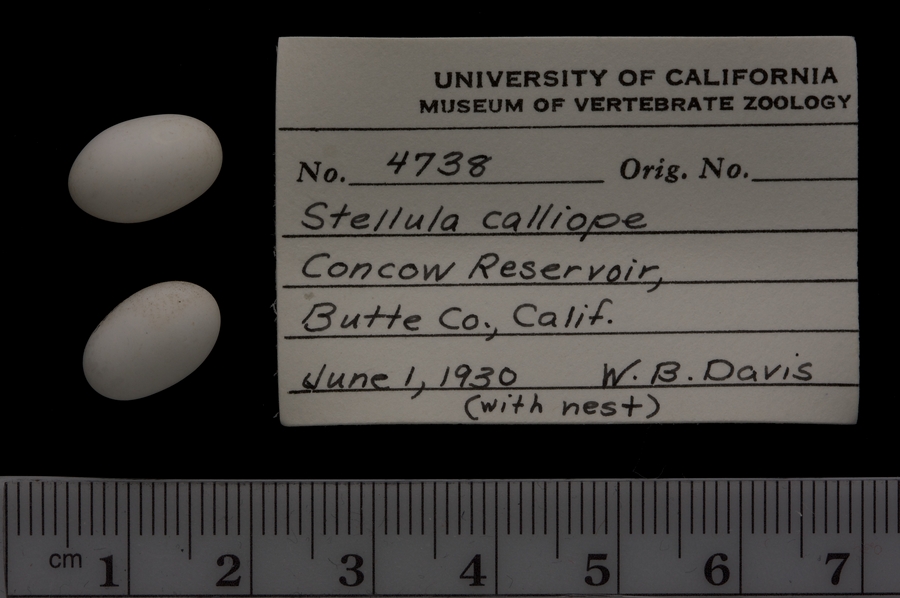 UNIVERSITY OF CALIFORNIA
MUSEUM OF VERTEBRATE ZOOLOGY
No. 4738 Orig. No.
Stellula calliope
Concow Reservoir,
Butte Co., Calif.
June 1, 1930 W. B. Davis
(with nest)
cm 1 2 3 4 5 6 7